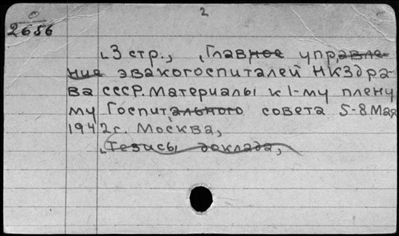 2
0
2656
3 стр., Главное управле-
ние эвакогоспиталей НКЗдра-
ва СССР. Материалы к 1-му плену-
му Госпитального совета 5-8 мая
1942г. Москва,
Тезисы доклада,